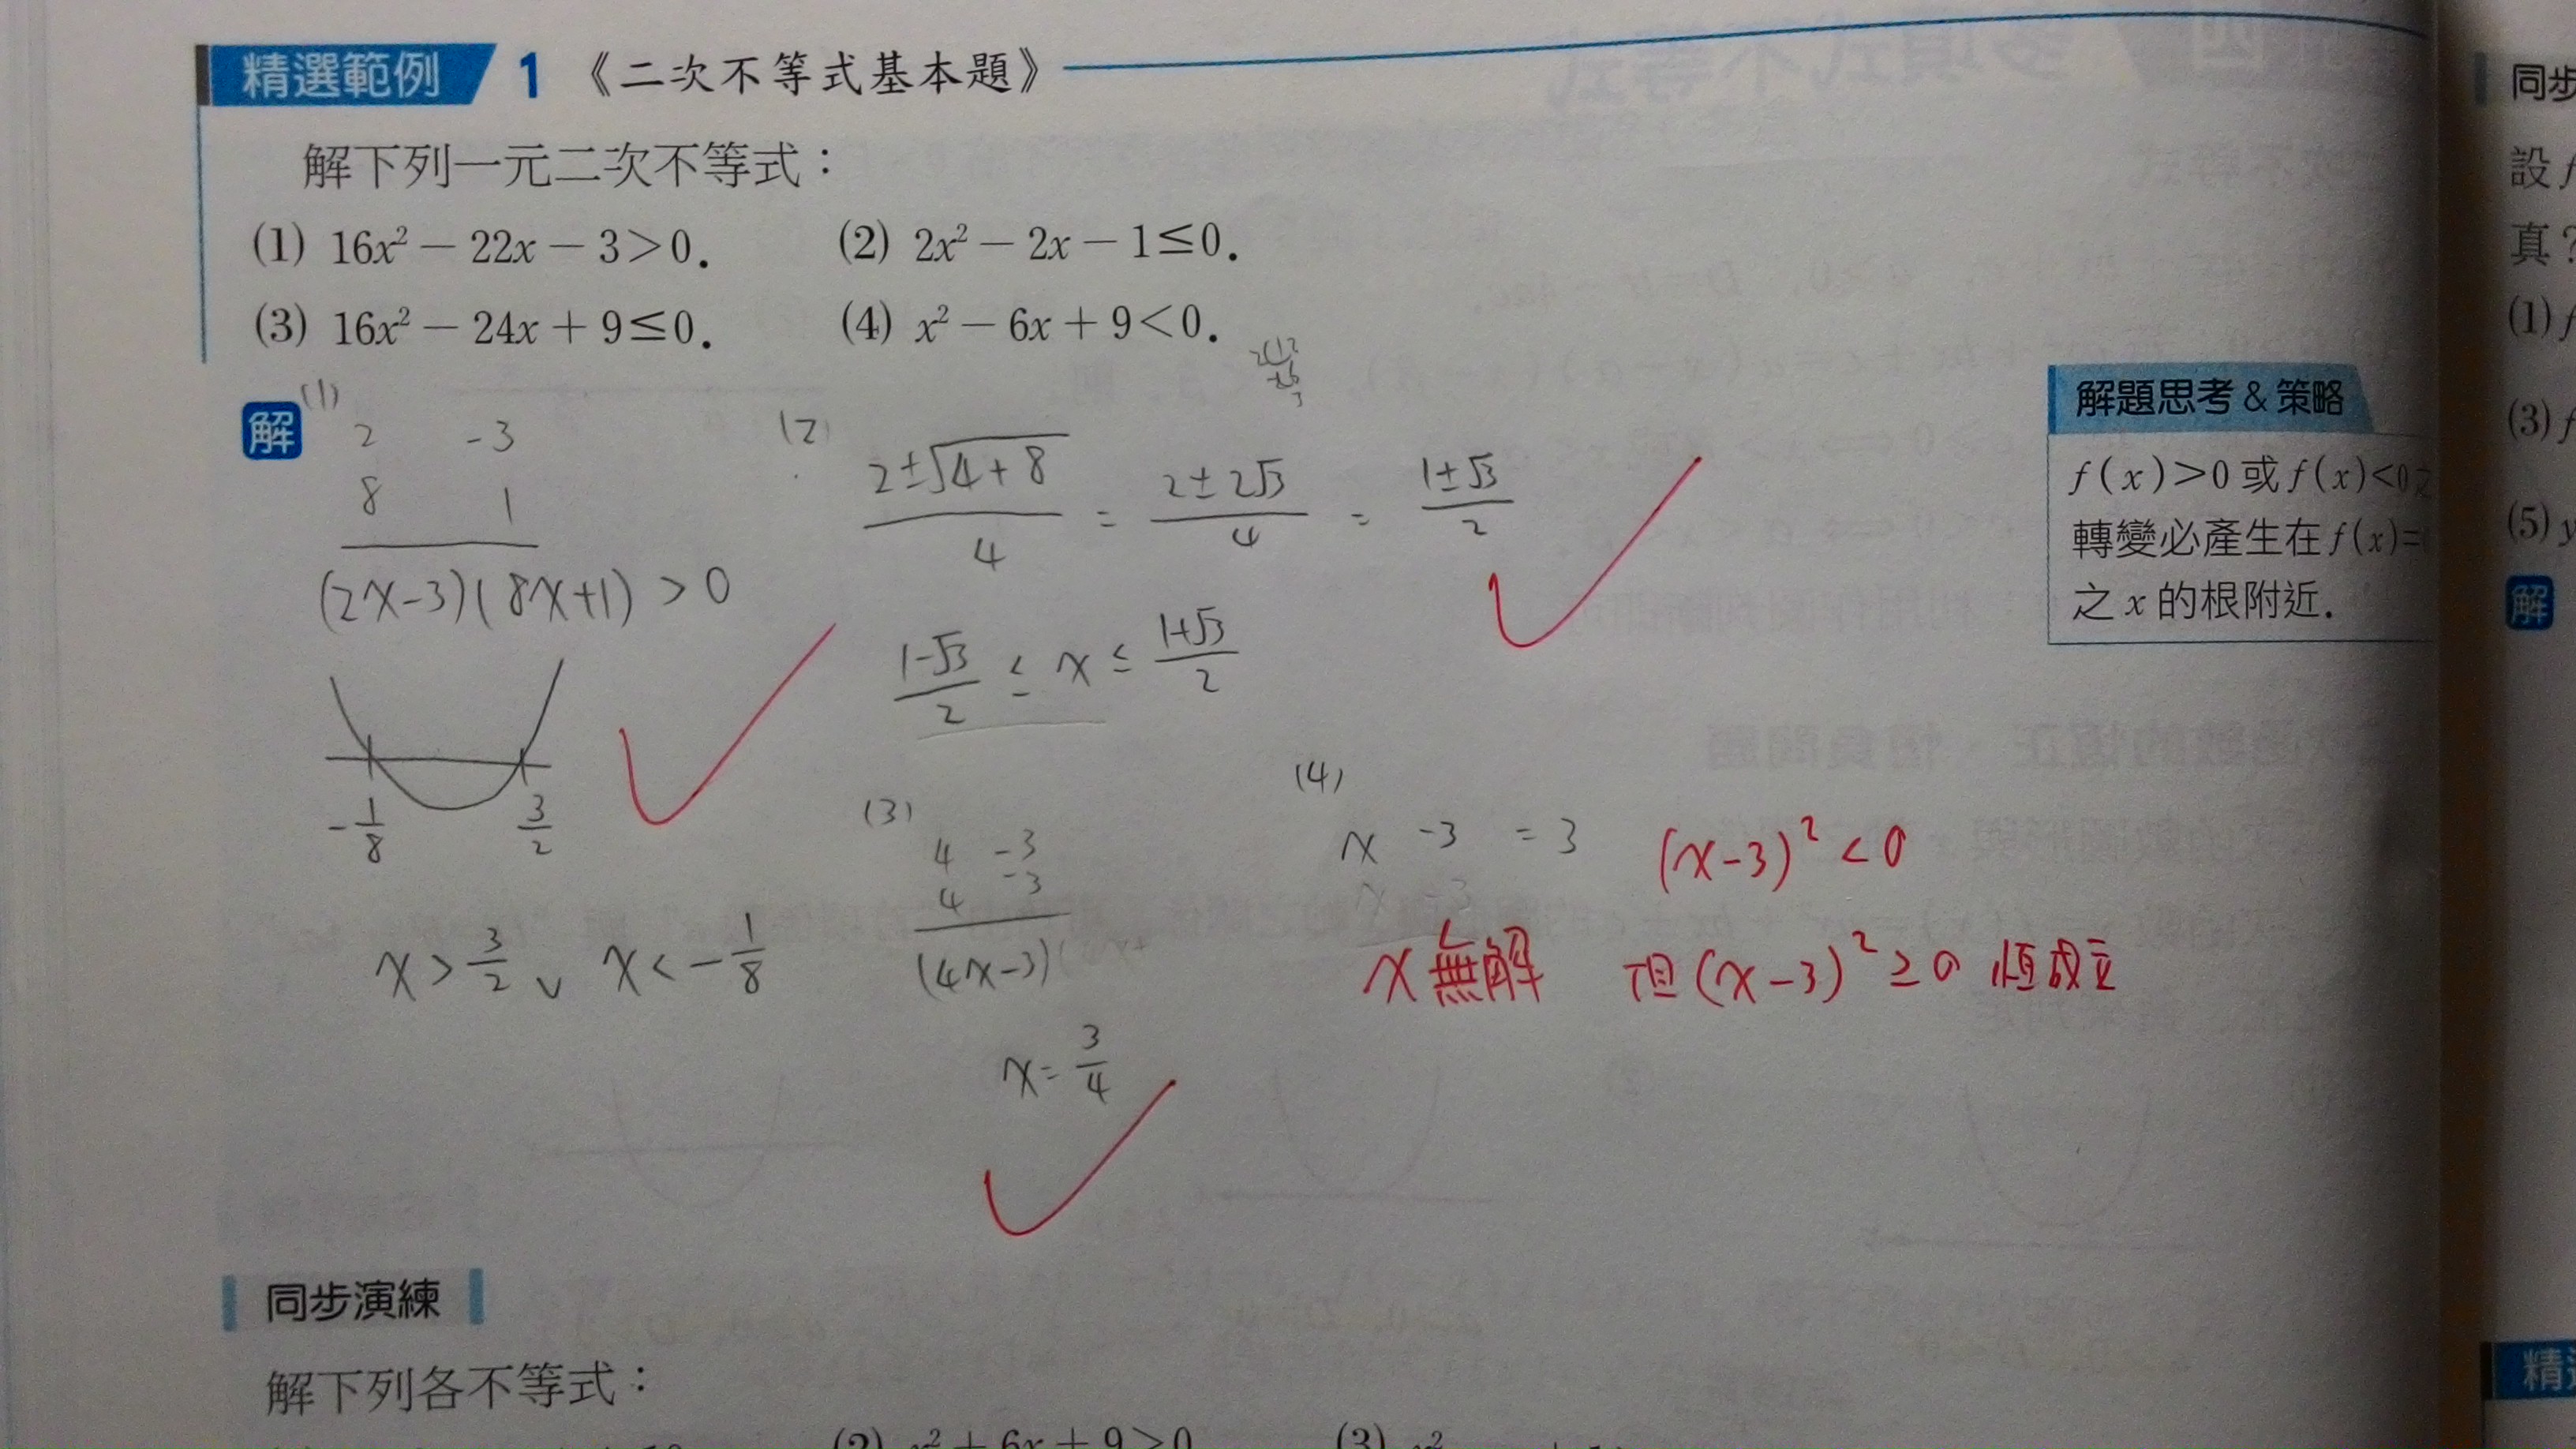 精選範例 1 《二次不等式基本題》
解下列一元二次不等式：
(1) 16x² − 22x − 3 > 0．
(2) 2x² − 2x − 1 ≤ 0．
(3) 16x² − 24x + 9 ≤ 0．
(4) x² − 6x + 9 < 0．
解題思考 & 策略
f(x)>0 或 f(x)<0
轉變必產生在 f(x)=
之 x 的根附近．
解
(1)
2 -3
8 1
(2x-3)(8x+1) > 0
-1/8 3/2
x > 3/2 ∨ x < -1/8
(2)
2±√4+8 / 4 = 2±2√3 / 4 = 1±√3 / 2
1-√3 / 2 ≤ x ≤ 1+√3 / 2
(3)
4 -3
4 -3
(4x-3)
x = 3/4
(4)
x -3 = 3
(x-3)² < 0
x 無解 但 (x-3)² ≥ 0 恆成立
同步演練
解下列各不等式：
(2) x² + 6x + 9 > 0
(3) x²
同步
設 f
真？
(1) f
(3) f
(5) y
解
精